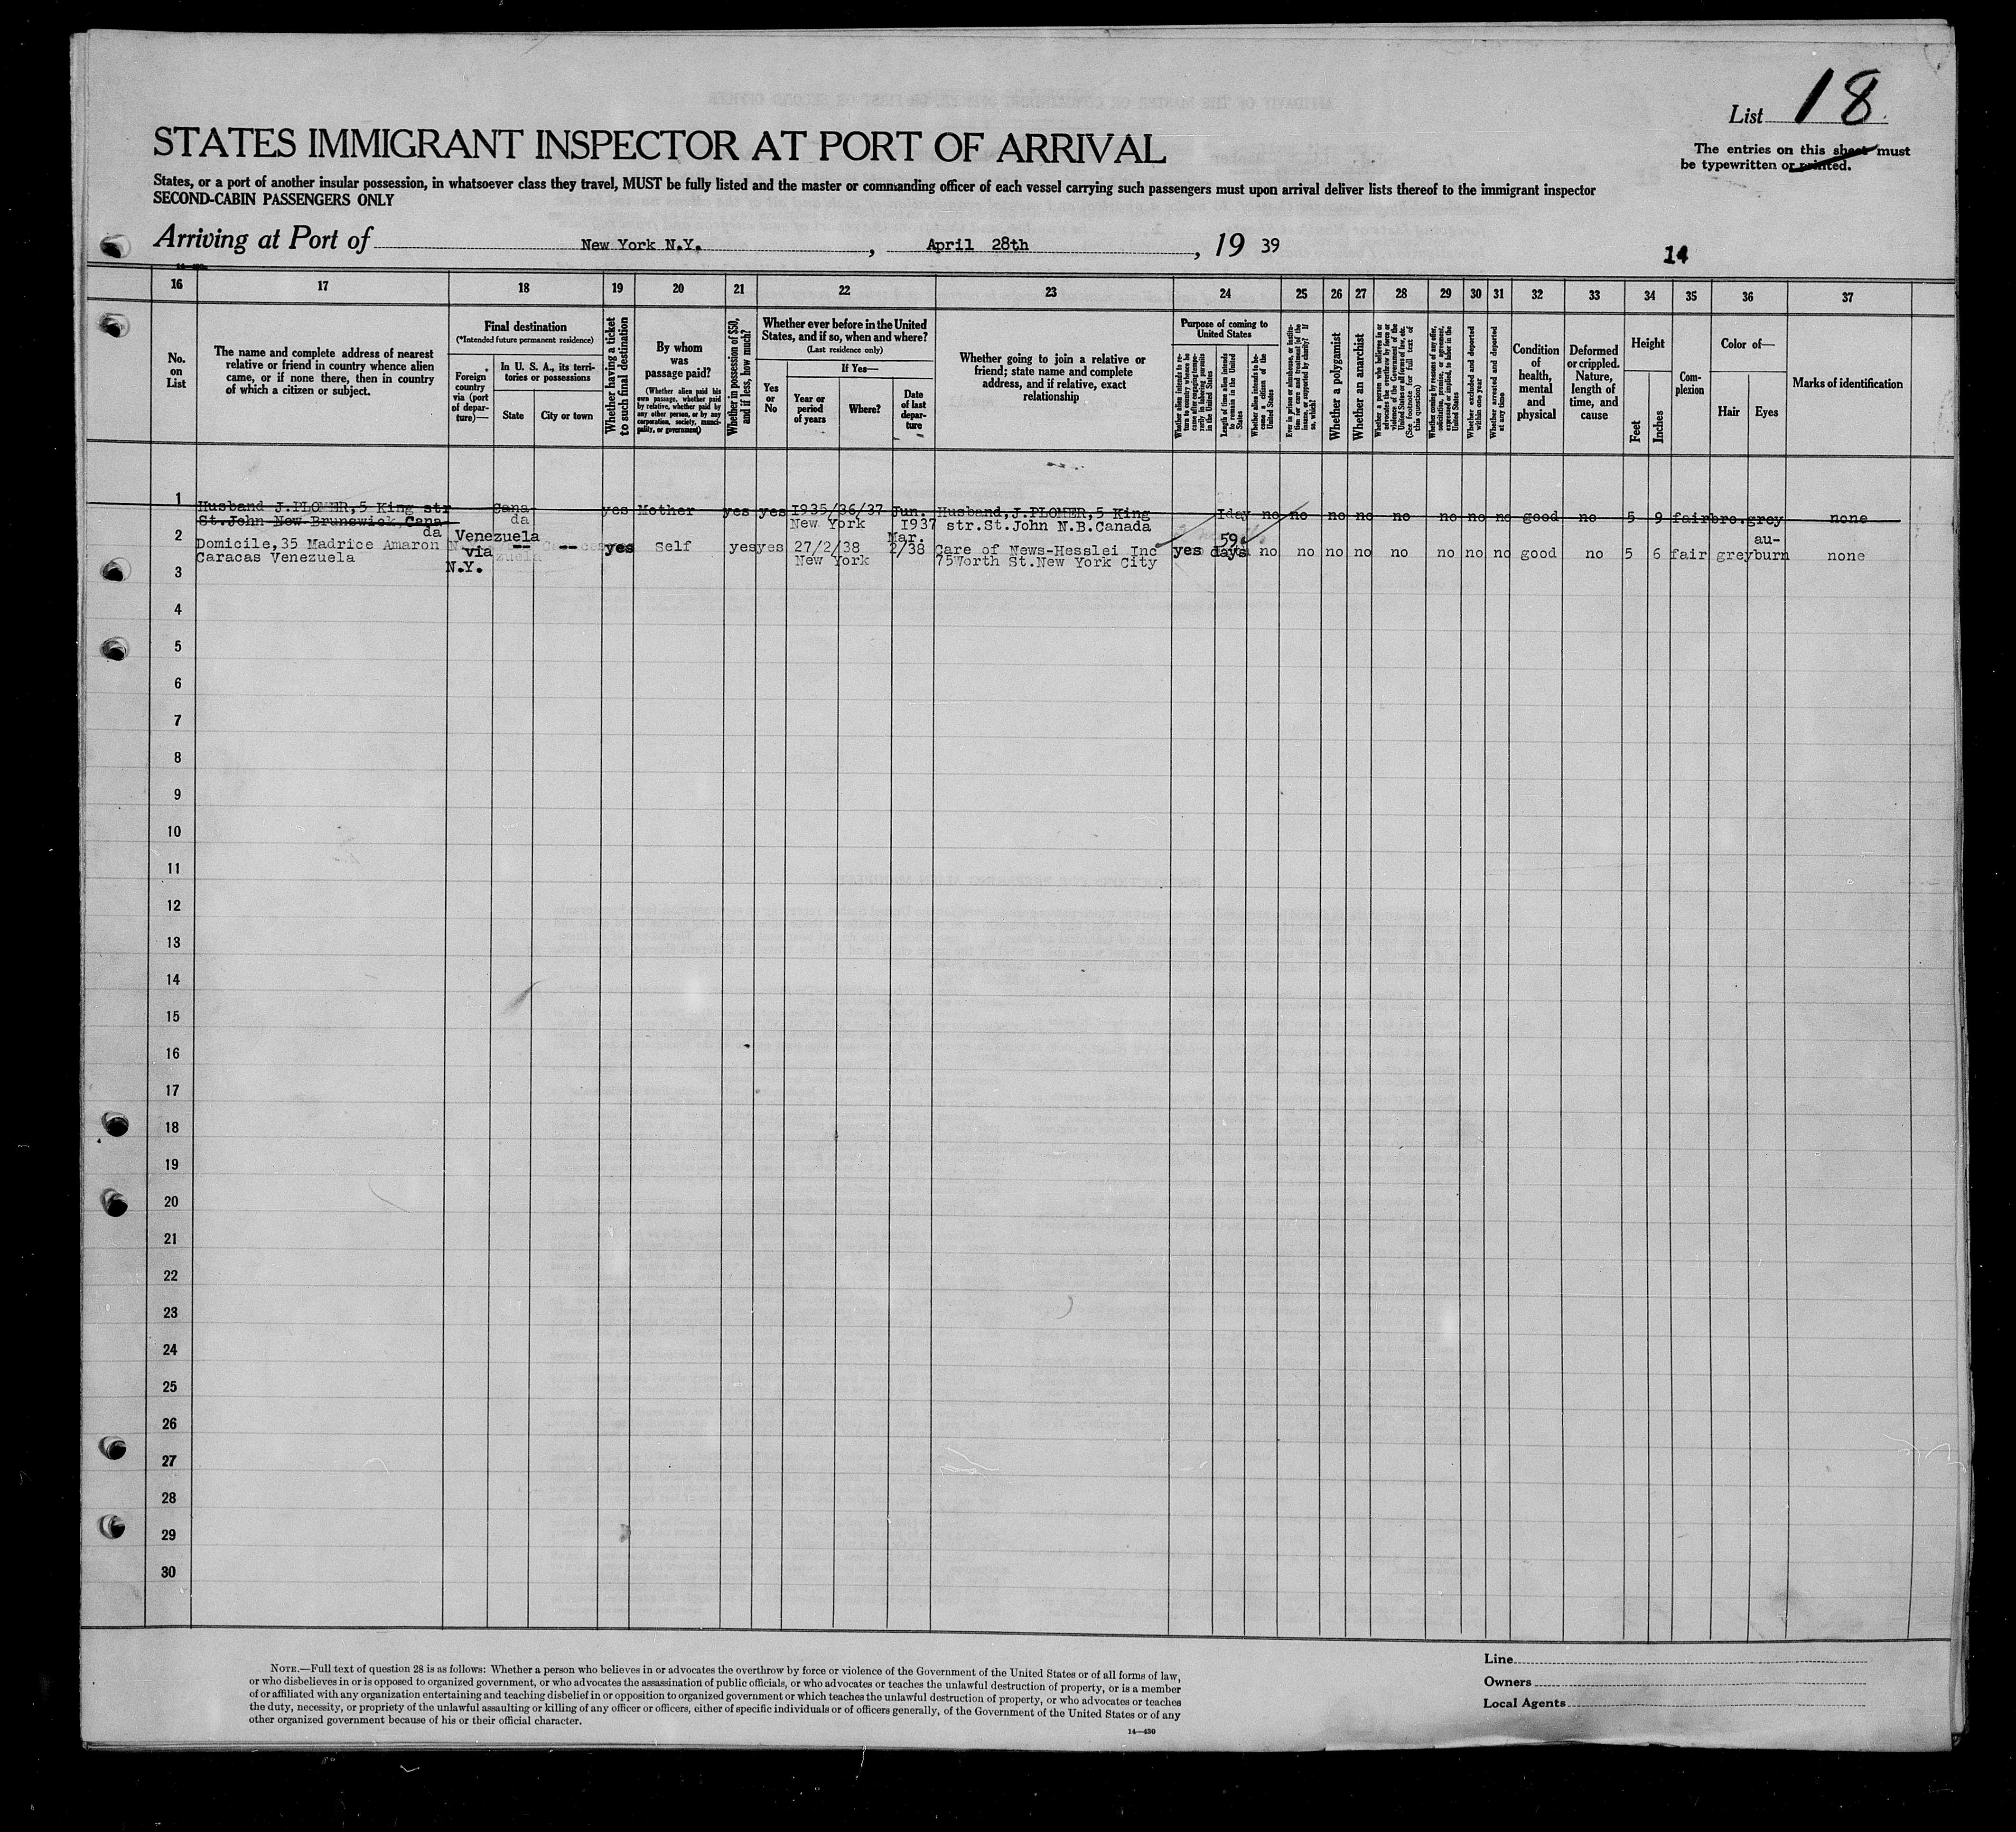 List 18
The entries on this sheet must
be typewritten or printed.
STATES IMMIGRANT INSPECTOR AT PORT OF ARRIVAL
States, or a port of another insular possession, in whatsoever class they travel, MUST be fully listed and the master or commanding officer of each vessel carrying such passengers must upon arrival deliver lists thereof to the immigrant inspector
SECOND-CABIN PASSENGERS ONLY
Arriving at Port of New York N.Y., April 28th, 19 39
14
16 17 18 19 20 21 22 23 24 25 26 27 28 29 30 31 32 33 34 35 36 37
No.
on
List
The name and complete address of nearest
relative or friend in country whence alien
came, or if none there, then in country
of which a citizen or subject.
Final destination
(*Intended future permanent residence)
Foreign
country
via (port
of depar-
ture)—
In U. S. A., its terri-
tories or possessions
State
City or town
Whether having a ticket
to such final destination
By whom
was
passage paid?
(Whether alien paid his
own passage, whether paid
by relative, whether paid by
any other person, or by any
corporation, society, munici-
pality, or government)
Whether in possession of $50,
and if less, how much?
Whether ever before in the United
States, and if so, when and where?
(Last residence only)
Yes
or
No
If Yes—
Year or
period
of years
Where?
Date
of last
depar-
ture
Whether going to join a relative or
friend; state name and complete
address, and if relative, exact
relationship
Purpose of coming to
United States
Whether alien intends to re-
turn to country whence he
came after engaging tempo-
rarily in laboring pursuits
in the United States
Length of time alien intends
to remain in the United
States
Whether alien intends to be-
come a citizen of the
United States
Ever in prison or almshouse, or institu-
tion for care and treatment of the
insane, or supported by charity? If
so, which?
Whether a polygamist
Whether an anarchist
Whether a person who believes in or
advocates the overthrow by force or
violence of the Government of the
United States or all forms of law, etc.
(See footnote for full text of
this question)
Whether coming by reasons of any offer,
solicitation, promise, or agreement,
expressed or implied, to labor in the
United States
Whether excluded and deported
within one year
Whether arrested and deported
at any time
Condition
of
health,
mental
and
physical
Deformed
or crippled.
Nature,
length of
time, and
cause
Height
Feet
Inches
Com-
plexion
Color of—
Hair
Eyes
Marks of identification
1 Husband J.PLOMER,5 King str Cana yes Mother yes yes 1935/36/37 Jun. Husband,J.PLOMER,5 King 1day no no no no no no no no good no 5 9 fair bro. grey none
St.John New Brunswick,Cana da New York 1937 str.St.John N.B.Canada
da
2 Domicile,35 Madrice Amaron Venezuela via N.Y. -- -- yes Self yes yes 27/2/38 Mar. 2/38 Care of News-Hesslei Inc yes 59 days no no no no no no no no good no 5 6 fair grey au-burn none
Caracas Venezuela New York 75Worth St.New York City
3
4
5
6
7
8
9
10
11
12
13
14
15
16
17
18
19
20
21
22
23
24
25
26
27
28
29
30
NOTE.—Full text of question 28 is as follows: Whether a person who believes in or advocates the overthrow by force or violence of the Government of the United States or of all forms of law,
or who disbelieves in or is opposed to organized government, or who advocates the assassination of public officials, or who advocates or teaches the unlawful destruction of property, or is a member
of or affiliated with any organization entertaining and teaching disbelief in or opposition to organized government or which teaches the unlawful destruction of property, or who advocates or teaches
the duty, necessity, or propriety of the unlawful assaulting or killing of any officer or officers, either of specific individuals or of officers generally, of the Government of the United States or of any
other organized government because of his or their official character.
14—430
Line
Owners
Local Agents